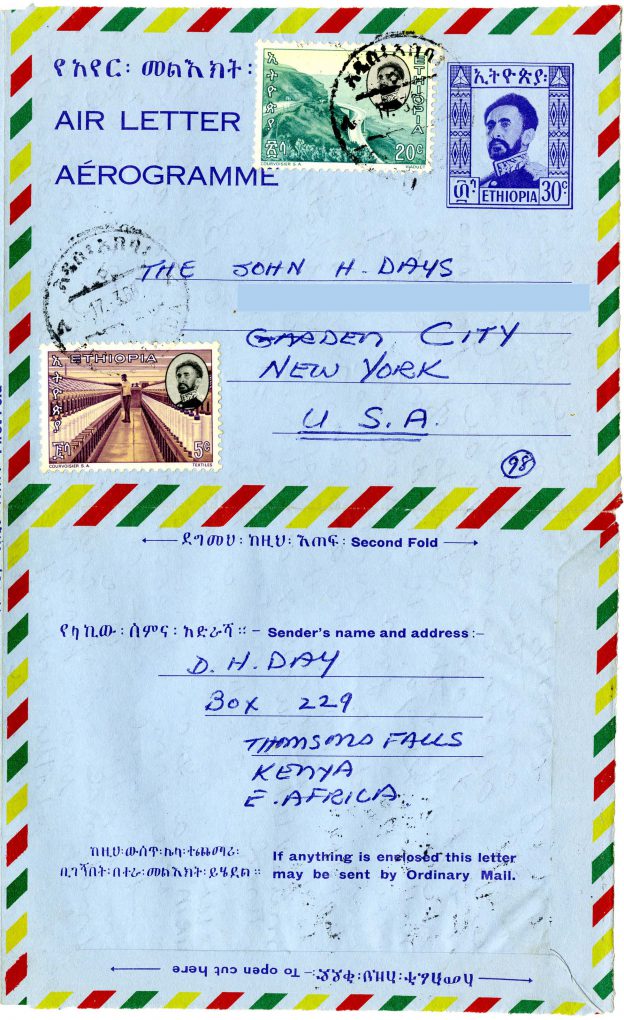 የአየር፡ መልእክት፡
AIR LETTER
AÉROGRAMME
ኢትዮጵያ
ETHIOPIA
20¢
COURVOISIER S.A.
ኢትዮጵያ፡
ETHIOPIA 30¢
አዲስ፡አበባ
17.3.
THE JOHN H. DAYS
GARDEN CITY
NEW YORK
U.S.A.
98
ETHIOPIA
ኢትዮጵያ
5¢
COURVOISIER S.A. TEXTILES
ደግመህ፡ ከዚህ፡ እጠፍ፡ Second Fold
የላኪው፡ ስምና፡ አድራሻ።– Sender's name and address:–
D. H. DAY
Box 229
THOMSONS FALLS
KENYA
E. AFRICA
ከዚህ፡ውስጥ፡ሌላ፡ተጨማሪ፡ If anything is enclosed this letter
ቢገኝበት፡በተራ፡መልእክት፡ይሄዳል። may be sent by Ordinary Mail.
ለመክፈቻ፡ከዚህ፡ይቈረጥ፡– To open cut here